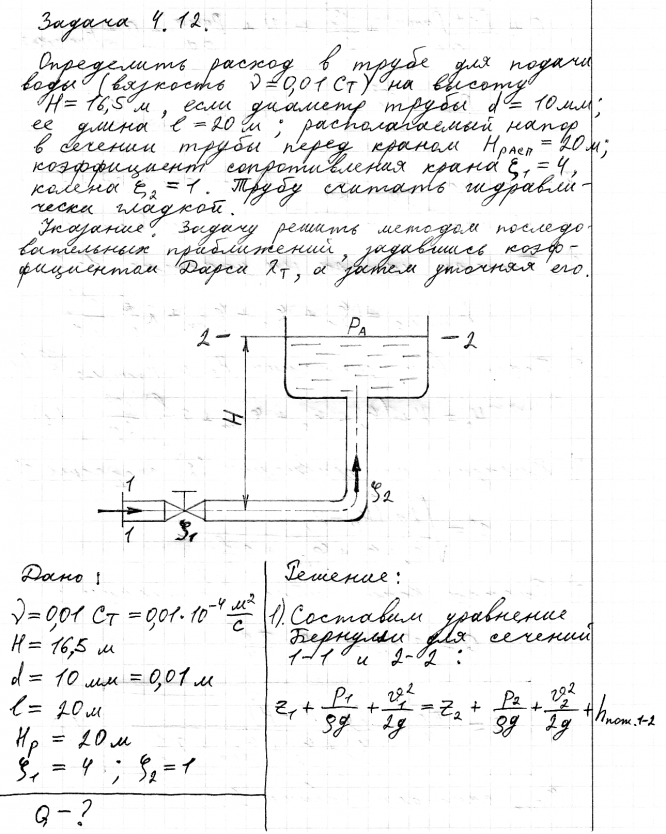 Задача 4.12.
Определить расход в трубе для подачи
воды (вязкость ν = 0,01 Ст) на высоту
H = 16,5 м, если диаметр трубы d = 10 мм;
ее длина l = 20 м; располагаемый напор
в сечении трубы перед краном Hрасп = 20 м;
коэффициент сопротивления крана ξ1 = 4,
колена ξ2 = 1. Трубу считать гидравли-
чески гладкой.
Указание: Задачу решить методом последо-
вательных приближений, задавшись коэф-
фициентом Дарси λт, а затем уточняя его.
PA
2 – – 2
H
1
ξ2
1 ξ1
Дано:
ν = 0,01 Ст = 0,01·10⁻⁴ м²/с
H = 16,5 м
d = 10 мм = 0,01 м
l = 20 м
Hр = 20 м
ξ1 = 4 ; ξ2 = 1
Q – ?
Решение:
1). Составим уравнение
Бернулли для сечений
1-1 и 2-2 :
z1 + P1/ρg + υ1²/2g = z2 + P2/ρg + υ2²/2g + hпот.1-2